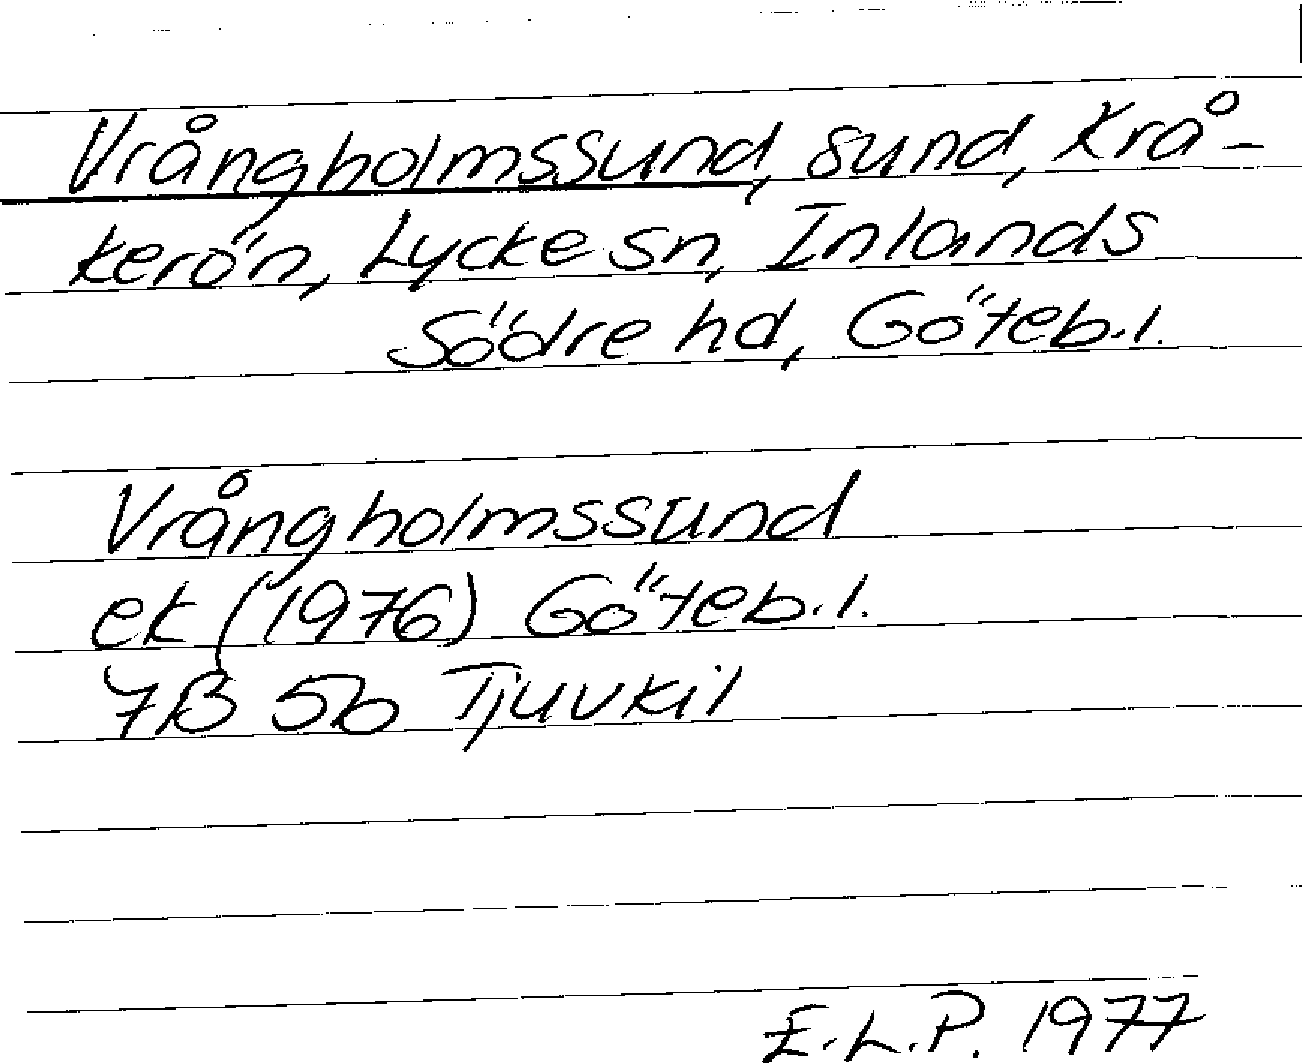 Vrångholmssund, sund, Krå-
kerön, Lycke sn, Inlands
Södre hd, Göteb.l.
Vrångholmssund
ek (1976) Göteb.l.
7B 5b Tjuvkil
E.L.P. 1977